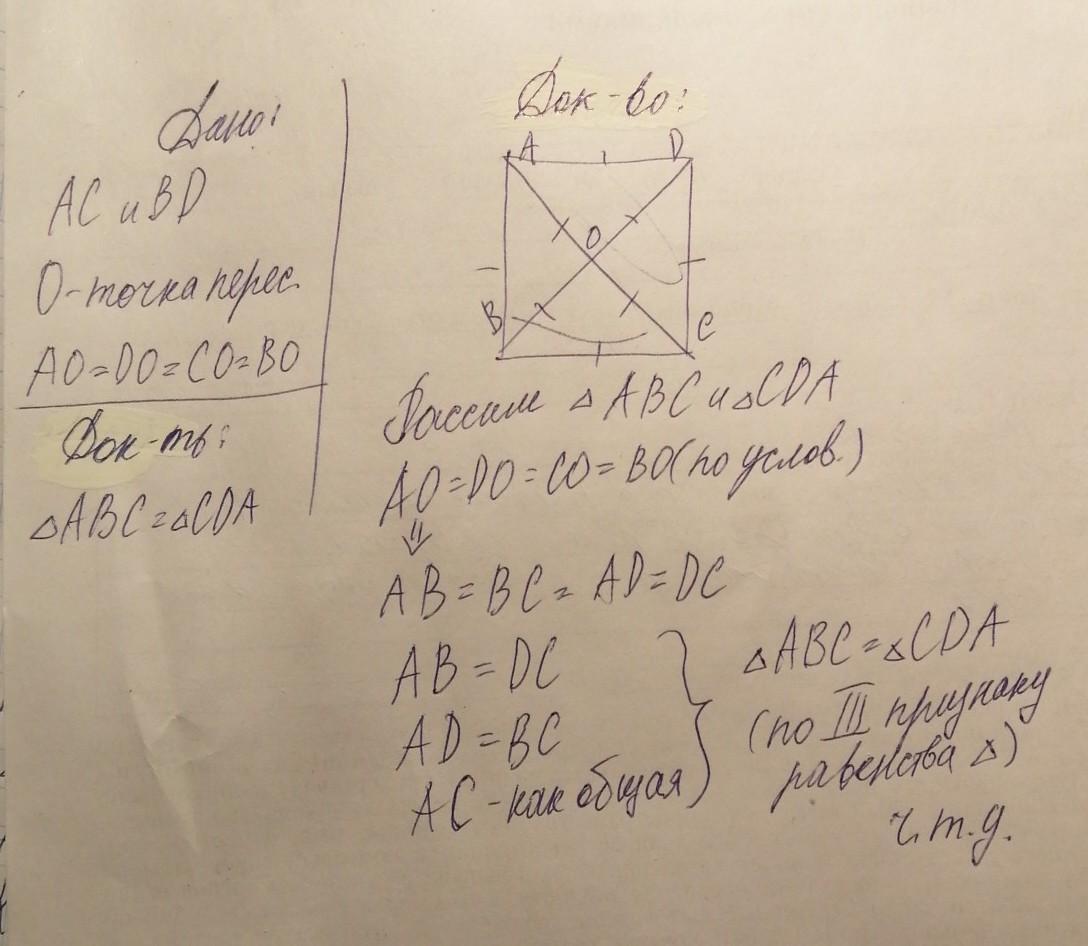 Дано:
AC и BD
O-точка перес.
AO=DO=CO=BO
Док-ть:
△ABC=△CDA
Док-во:
A D
O
B C
Рассмм △ABC и △CDA
AO=DO=CO=BO(по услов.)
⇓
AB=BC=AD=DC
AB=DC
AD=BC
AC-как общая
△ABC=△CDA
(по III признаку
равенства △)
ч.т.д.